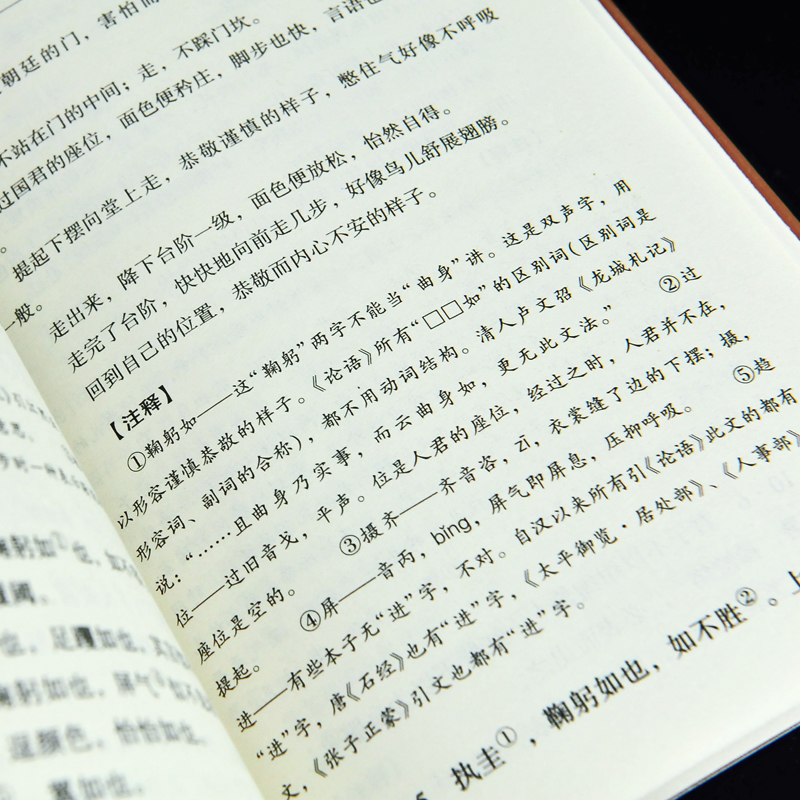 朝廷的门，害怕而
不站在门的中间；走，不踩门坎。
过国君的座位，面色便矜庄，脚步也快，言语也
提起下摆向堂上走，恭敬谨慎的样子，憋住气好像不呼吸
。
走出来，降下台阶一级，面色便放松，怡然自得。
走完了台阶，快快地向前走几步，好像鸟儿舒展翅膀。
一般。
回到自己的位置，恭敬而内心不安的样子。
【注释】
①鞠躬如——这“鞠躬”两字不能当“曲身”讲。这是双声字，用
以形容谨慎恭敬的样子。《论语》所有“□□如”的区别词（区别词是
形容词、副词的合称），都不用动词结构。清人卢文弨《龙城札记》
说：“……且曲身乃实事，而云曲身如，更无此文法。” ②过
位——过旧音戈，平声。位是人君的座位，经过之时，人君并不在，
座位是空的。 ③摄齐——齐音咨，zī，衣裳缝了边的下摆；摄，
提起。 ④屏——音丙，bǐng，屏气即屏息，压抑呼吸。 ⑤趋
进——有些本子无“进”字，不对。自汉以来所有引《论语》此文的都有
“进”字，唐《石经》也有“进”字，《太平御览·居处部》、《人事部》
文，《张子正蒙》引文也都有“进”字。
执圭①，鞠躬如也，如不胜②。上
躬如①也，如不
也，足躩如也，其
鞠躬如也，屏气
逞颜色，怡怡如也。
翼如也。